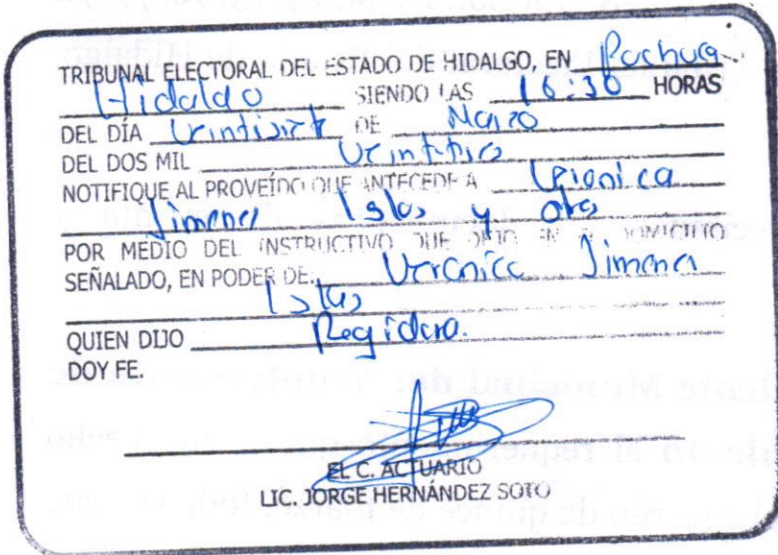 TRIBUNAL ELECTORAL DEL ESTADO DE HIDALGO, EN Pachuca
Hidalgo SIENDO LAS 16:30 HORAS
DEL DÍA Veintisiete DE Marzo
DEL DOS MIL Veintitres
NOTIFIQUE AL PROVEÍDO QUE ANTECEDE A Veronica
Jimenez Islas y otro
POR MEDIO DEL INSTRUCTIVO QUE DEJO EN EL DOMICILIO
SEÑALADO, EN PODER DE. Veronica Jimenez
Islas
QUIEN DIJO Regidora.
DOY FE.
EL C. ACTUARIO
LIC. JORGE HERNÁNDEZ SOTO